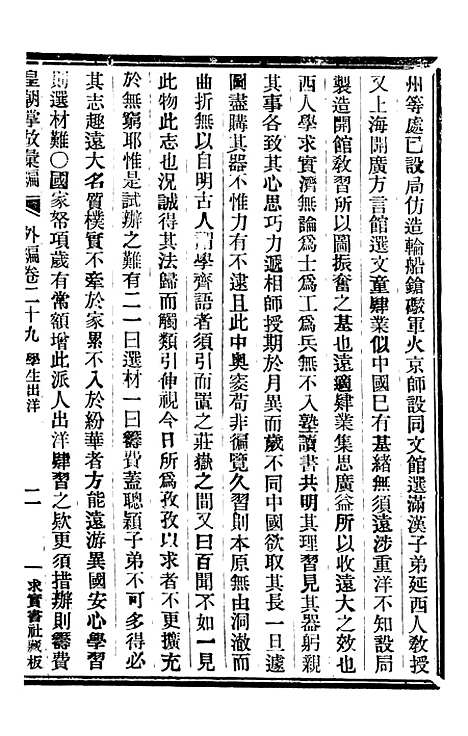 州等處已設局仿造輪船鎗礮軍火京師設同文館選滿漢子弟延西人教授
又上海開廣方言館選文童肄業似中國已有基緒無須遠涉重洋不知設局
製造開館敎習所以圖振奮之基也遠適肄業集思廣益所以收遠大之效也
西人學求實濟無論爲士爲工爲兵無不入塾讀書共明其理習見其器躬親
其事各致其心思巧力遞相師授期於月異而歲不同中國欲取其長一旦遽
圖盡購其器不惟力有不逮且此中奥窔苟非徧覽久習則本原無由洞澈而
曲折無以自明古人謂學齊語者須引而置之莊嶽之間又曰百聞不如一見
此物此志也況誠得其法歸而觸類引伸視今日所爲孜孜以求者不更擴充
於無窮耶惟是試辦之難有二一曰選材一曰籌費蓋聰穎子弟不可多得必
其志趣遠大名質樸實不牽於家累不入於紛華者方能遠游異國安心學習
則選材難○國家帑項歲有常額增此派人出洋肄習之欵更須措辦則籌費
皇朝掌故彙編 外編卷二十九 學生出洋 二 求實書社藏板